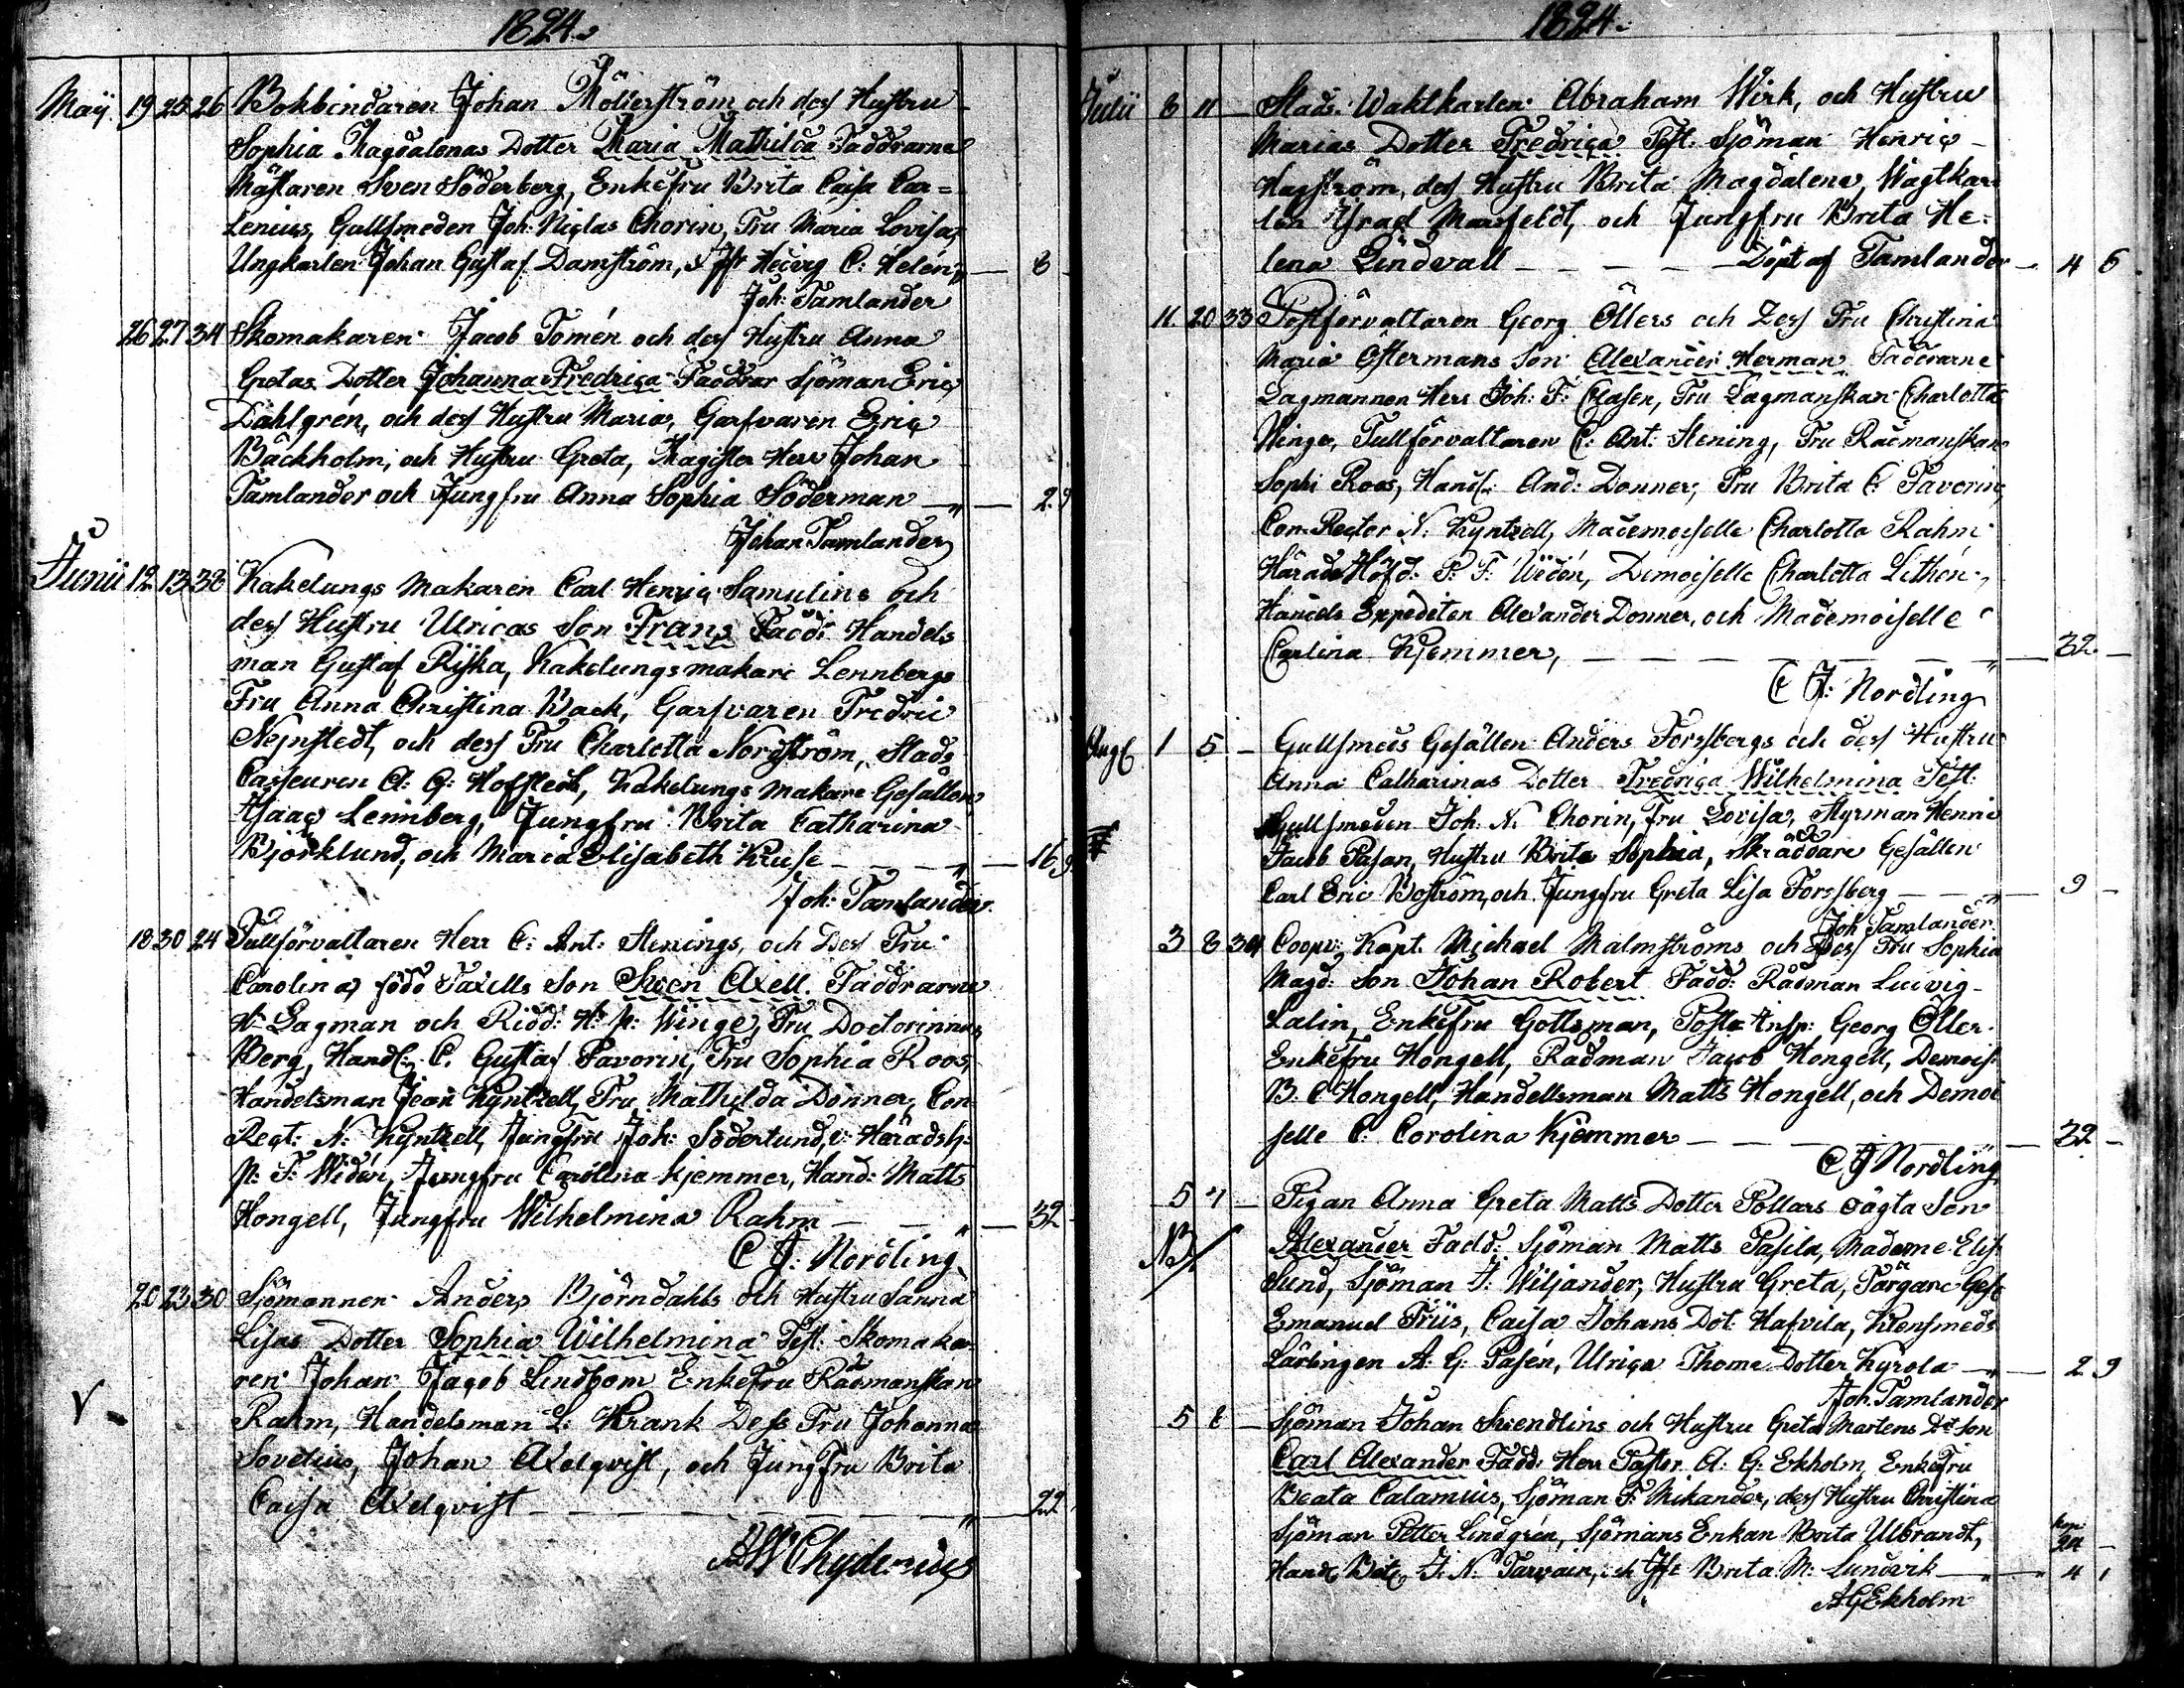 1824.
Maÿ. 19 25 26 Bokbindaren Johan Möllerström och dess Hustru
Sophia Magdalenas Dotter Maria Mathilda Faddrarne
Mästaren Sven Söderberg, Enkefru Brita Caisa Car=
Lenius, Gullsmeden Joh: Niclas Chorin, Fru Maria Lovisa,
Ungkarlen Johan Gustaf Damström, Jfr Hedvig C: Helén „ — 8
Joh: Tamlander
26 27 34 Skomakaren Jacob Tomén och dess Hustru Anna
Gretas Dotter Johanna Fredrica Faddrar Sjöman Eric
Dahlgrén, och dess Hustru Maria, Garfvaren Eric
Bäckholm, och Hustru Greta, Magister Herr Johan
Tamlander och Jungfru Anna Sophia Söderman — „ — 2. 9
Johan Tamlander
Junii 12 13 38 Kakelungs Makaren Carl Henric Samulins och
dess Hustru Ulricas Son Frans Fadd: Handels
man Gustaf Riska, Kakelungsmakare Lennbergs
Fru Anna Christina Back, Garfvaren Fredric
Nejnstedt, och dess Fru Charlotta Nordström, Stads
Casseuren A: G: Hoffledt, Kakelungs Makare Gesällen
Isaac Lennberg, Jungfru Brita Catharina
Björklund, och Maria Elisabeth Kruse — — — „ — 16 9
Joh: Tamlander
18 30 24 Tullförvaltaren Herr C: Ant: Stenings, och Dess Fru
Carolina född Taxells Son Sven Axell. Faddrarne
Hr Lagman och Ridd: H: P: Winge, Fru Doctorinnan
Berg, Handl: C. Gustaf Favorin, Fru Sophia Roos,
Handelsman Jean Kyntzell, Fru Mathilda Donner, Con
Regt: N: Kyntzell, Jungfru Joh: Söderlund, v: Häradsh:
P: F: Widén, Jungfru Carolina Kjemmer, Hand: Matts
Hongell, Jungfru Wilhelmina Rahm — — „ — 32 -
C J: Nordling
20 23 30 Sjömannen Anders Björndahls och Hustru Sanna
Lisas Dotter Sophia Wilhelmina Test: Skomaka
ren Johan Jacob Lindbom Enkefru Rådmanskan
V Rahm, Handelsman L: Krank Dess Fru Johanna
Sovelius, Johan Axelqvist, och Jungfru Brita
Caisa Axelqvist — — — — — — „ — 22
AWChydenius
1824.
Julii 8 11 — Stads Waktkarlen Abraham Wirk, och Hustru
Marias Dotter Fredrica Test: Sjöman Henric
Hagström, dess Hustru Brita Magdalena, Wagtkar
len Israel Marsfeldt, och Jungfru Brita He=
lena Lindvall — — — — Döpt af Tamlander — 4 6
11 20 33 Postförvaltaren Georg Öllers och Dess Fru Christina
Maria Östermans Son Alexander Herman Faddrarne
Lagmannen Herr Joh: F: Clasen, Fru Lagmanskan Charlotta
Winge, Tullförvaltaren C: Ant: Stening, Fru Rådmanskan
Sophi Roos, Handl: And: Donner, Fru Brita C: Favorin,
Con Rector N: Kyntzell, Mademoiselle Charlotta Rahm
Härads Höfd: P: F: Widén, Demoiselle Charlotta Lithén,
Handels Expediten Alexander Donner, och Mademoiselle
Carlina Kjemmer, — — — — — — — „ — 32. —
C J: Nordling
Aug 1 5 — Gullsmeds Gesällen Anders Forssbergs och dess Hustru
Anna Catharinas Dotter Fredrica Wilhelmina Test:
Gullsmeden Joh. N. Chorin, Fru Lovisa, Styrman Henric
Jacob Pasan, Hustru Brita Sophia, Skräddare Gesällen
Carl Eric Boström, och Jungfru Greta Lisa Forssberg — — „ — 9 —
Joh Tamlander.
3 8 34 Coopv: Kapt. Michael Malmströms och Dess Fru Sophia
Magd: Son Johan Robert Fadd: Rådman Ludvig
Lalin, Enkefru Gottsman, Post Insp: Georg Öller
Enkefru Hongell, Rådman Jacob Hongell, Demois
B. C Hongell, Handellsman Matts Hongell, och Demoi
selle C: Carolina Kjemmer — — — — — — 32 —
C J Nordling
5 7 — Pigan Anna Greta Matts Dotter Pollars oägta Son
NB/ Alexander Fadd: Sjöman Matts Pasila, Madame Elis
Sund, Sjöman J: Wiljander, Hustru Greta, Färgare Ges
Emanuel Friis, Caisa Johans Dot: Hafvila, Klensmeds
Lärlingen A: G: Pasén, Ulrica Thome Dotter Kyrola — „ — 2 9
Joh. Tamlander
5 8 — Sjöman Johan Svendlins och Hustru Greta Martens Dr Son
Carl Alexander Fadd: Herr Pastor A: G: Ekholm, Enkefru
Beata Calamnius, Sjöman F: Mikander, dess Hustru Christina
Sjöman Petter Lindgrén, Sjömans Enkan Brita Ulbrandt, 24 —
Handl: Betj: J: N: Tarvain, och Jfr Brita M: Sundvik — „ — 4 1
AGEkholm